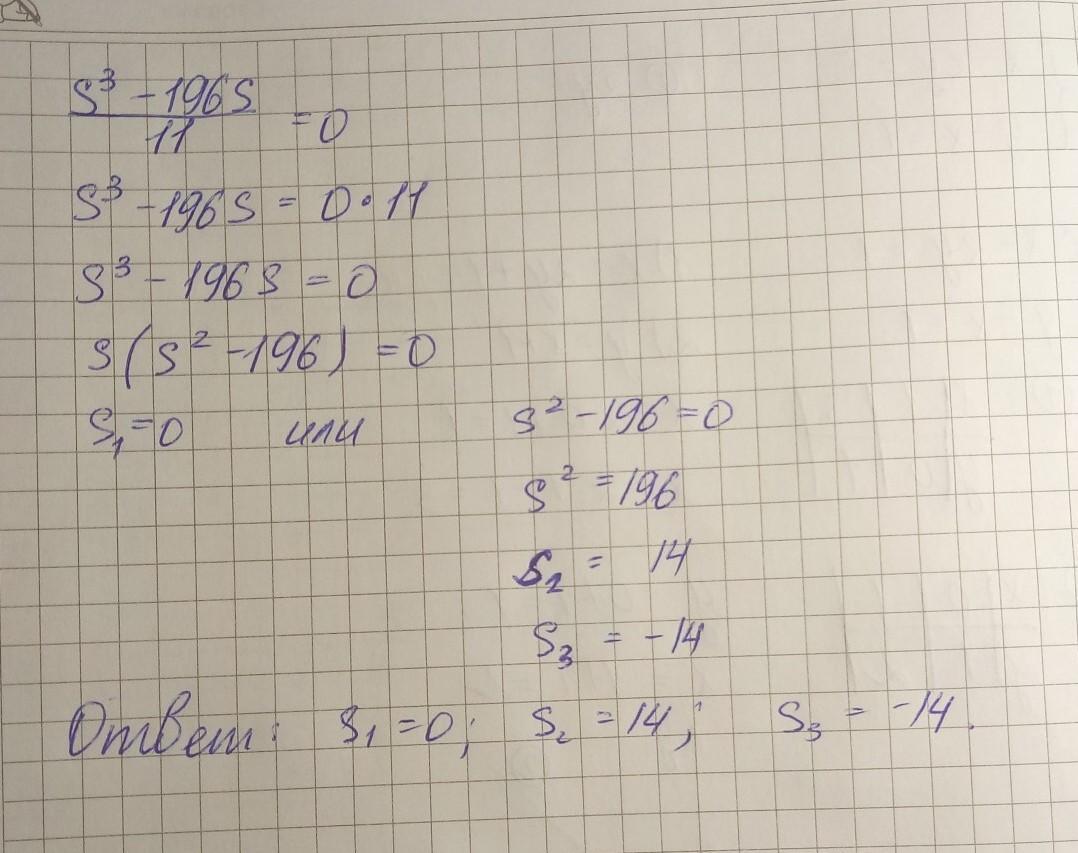 S³ - 196S
11
= 0
S³ - 196S = 0 · 11
S³ - 196S = 0
S(S² - 196) = 0
S₁ = 0 или S² - 196 = 0
S² = 196
S₂ = 14
S₃ = -14
Ответ: S₁ = 0; S₂ = 14; S₃ = -14.